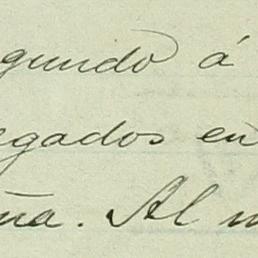 egundo á
egados en
ña. Al m